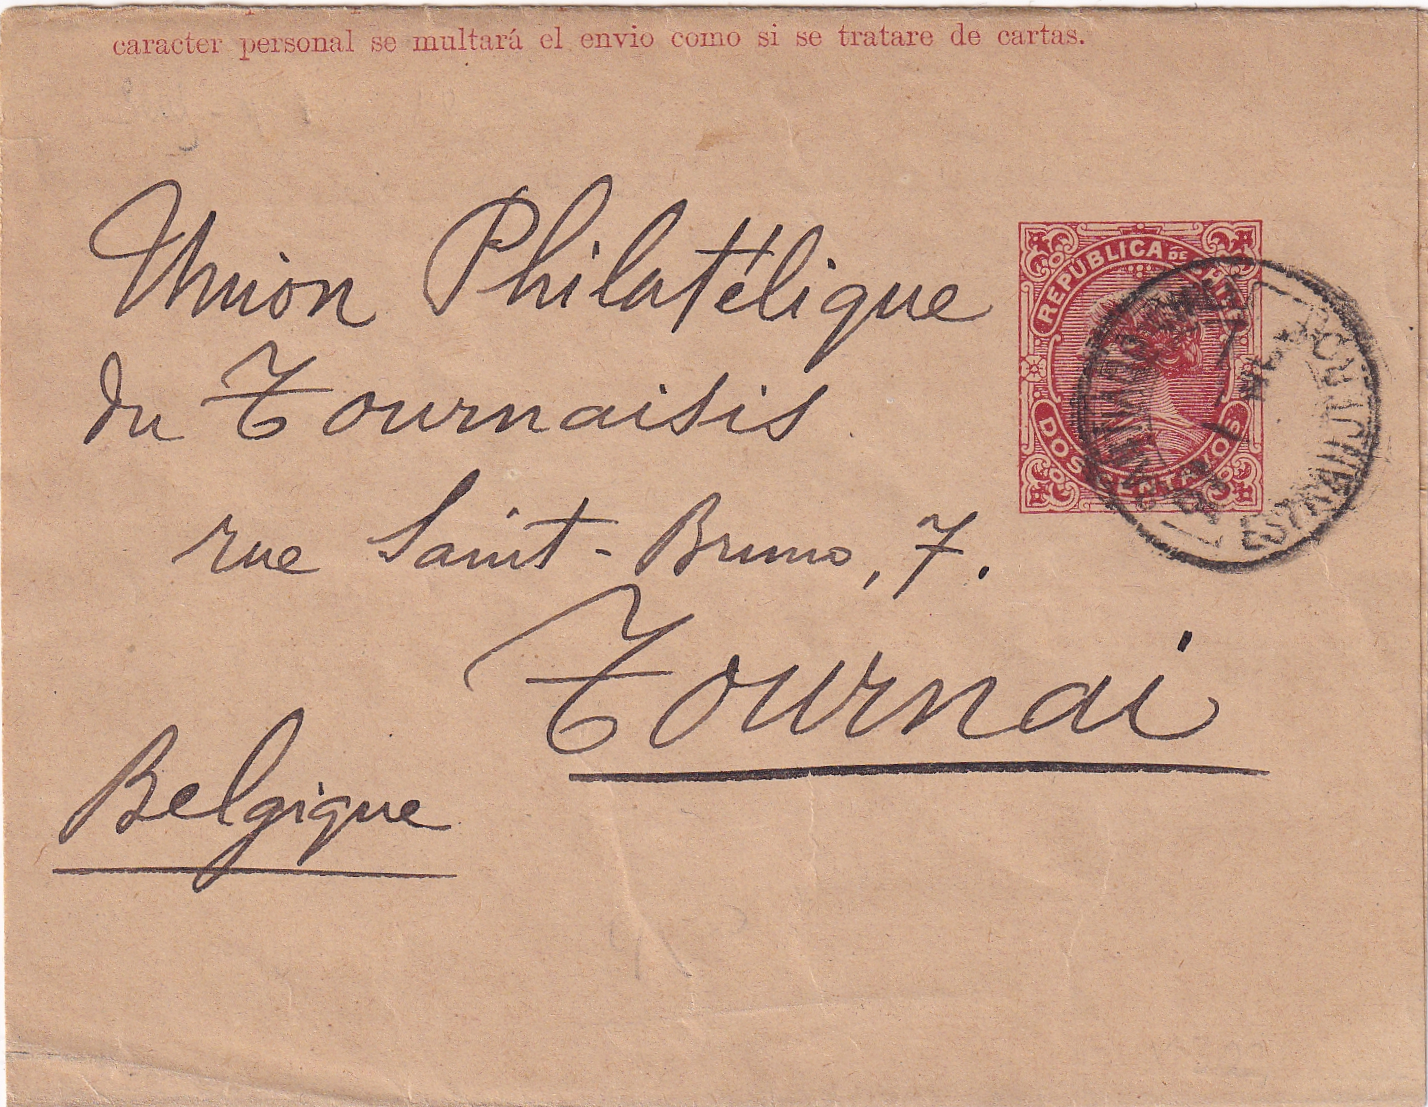 caracter personal se multará el envio como si se tratare de cartas.
Union Philatélique
du Tournaisis
rue Saint-Bruno, 7.
Tournai
Belgique
REPÚBLICA DE
DOS CENTAVOS
SANTIAGO
ESTRANJERO